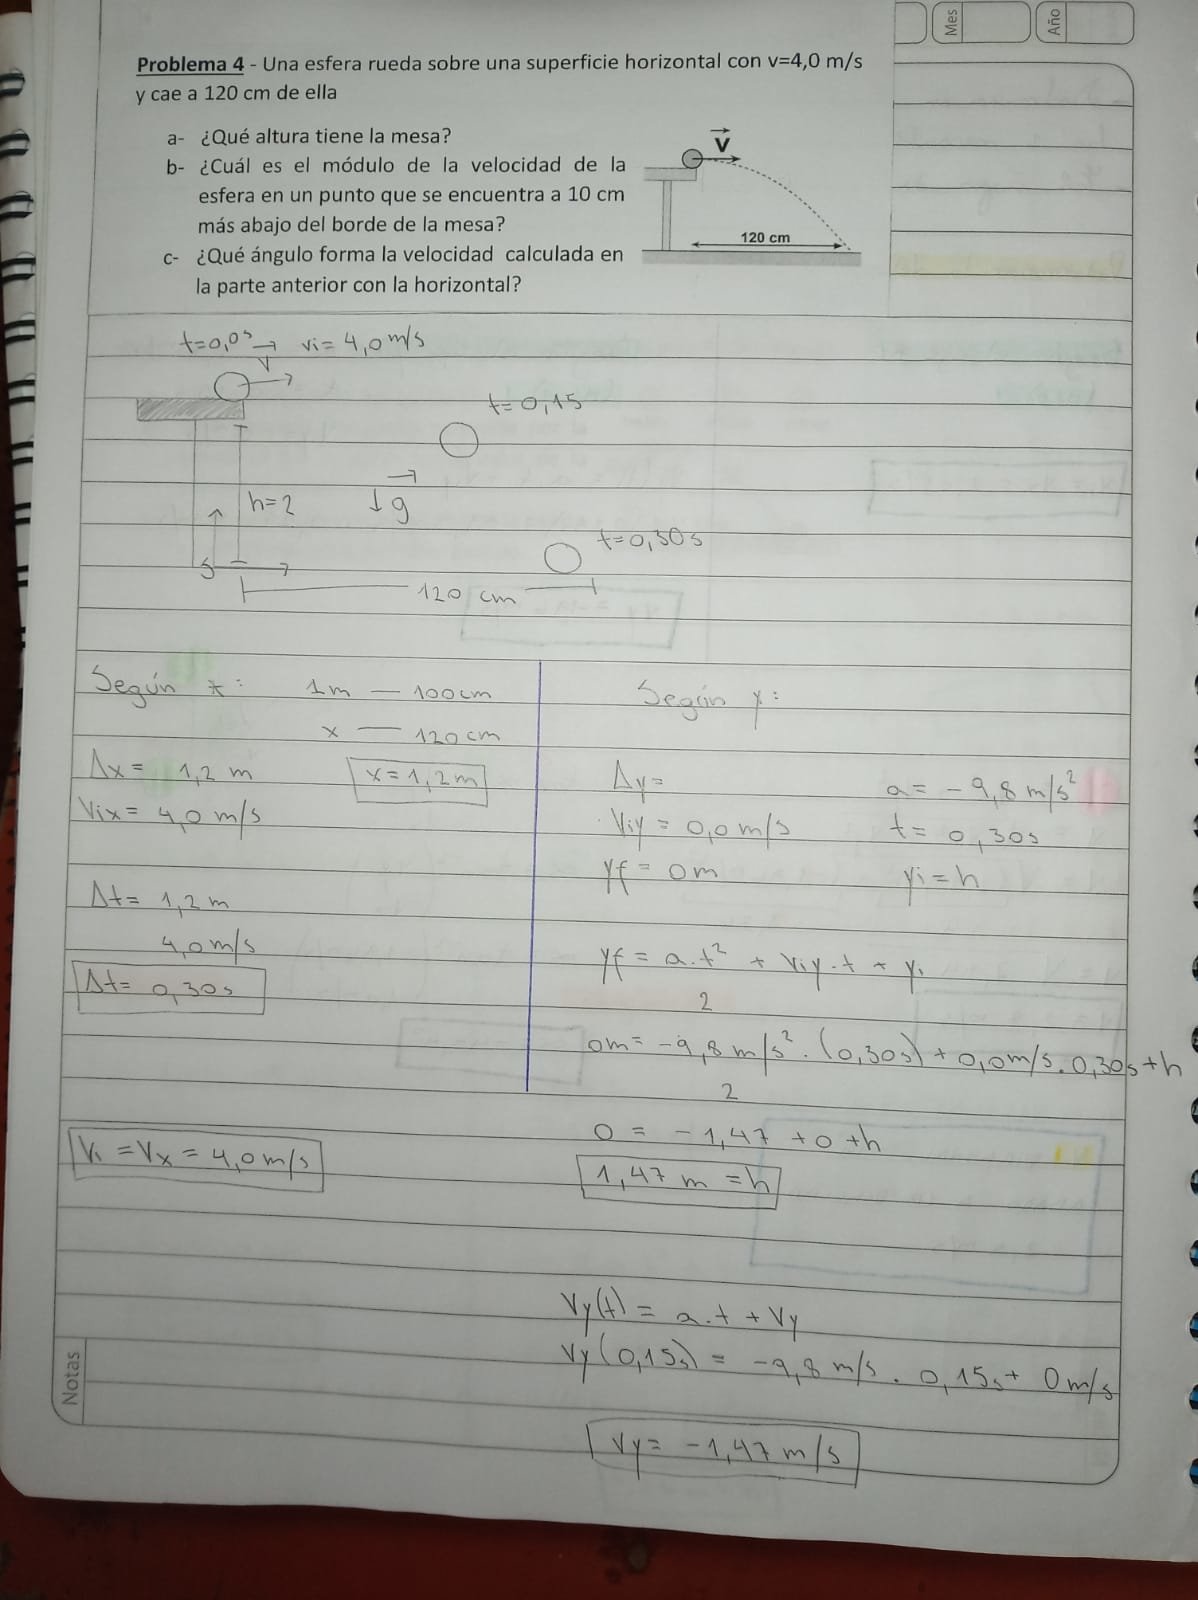 Mes
Año
Problema 4 - Una esfera rueda sobre una superficie horizontal con v=4,0 m/s
y cae a 120 cm de ella
a- ¿Qué altura tiene la mesa?
b- ¿Cuál es el módulo de la velocidad de la
esfera en un punto que se encuentra a 10 cm
más abajo del borde de la mesa?
c- ¿Qué ángulo forma la velocidad calculada en
la parte anterior con la horizontal?
V
120 cm
t=0,0s → vi= 4,0 m/s
V
t= 0,15
h=2
g
t=0,30s
120 cm
Según x:
1m — 100cm
x — 120cm
Δx= 1,2 m
x=1,2m
Vix= 4,0 m/s
Δt= 1,2m
4,0m/s
Δt= 0,30s
Vi =Vx = 4,0m/s
Según y:
Δy=
a= -9,8 m/s²
Viy = 0,0 m/s
t= 0,30s
yf= 0m
yi=h
yf= a.t² + Viy.t + yi
2
0m= -9,8 m/s² . (0,30s) + 0,0m/s . 0,30s+h
2
0 = -1,47 +0 +h
1,47 m =h
Vy(t) = a.t + Vy
Vy(0,15s) = -9,8 m/s . 0,15s+ 0m/s
Vy= -1,47 m/s
Notas